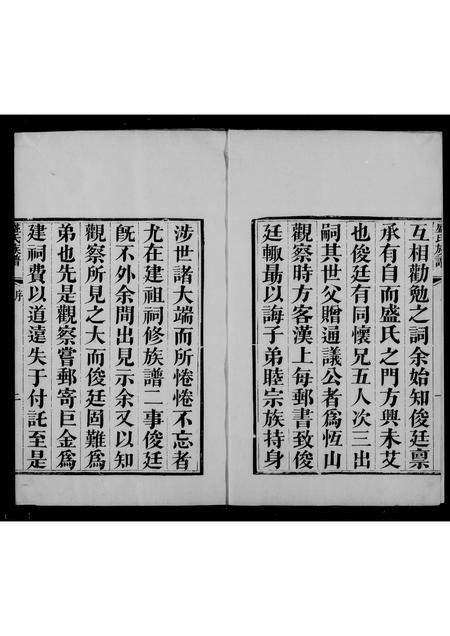 互相勸勉之詞余始知俊廷禀
承有自而盛氏之門方興未艾
也俊廷有同懷兄五人次三出
嗣其世父贈通議公者爲恆山
觀察時方客漢上每郵書致俊
廷輙勗以誨子弟睦宗族持身
盛氏族譜
序
二
涉世諸大端而所惓惓不忘者
尤在建祖祠修族譜二事俊廷
旣不外余間出見示余又以知
觀察所見之大而俊廷固難爲
弟也先是觀察嘗郵寄巨金爲
建祠費以道遠失于付託至是